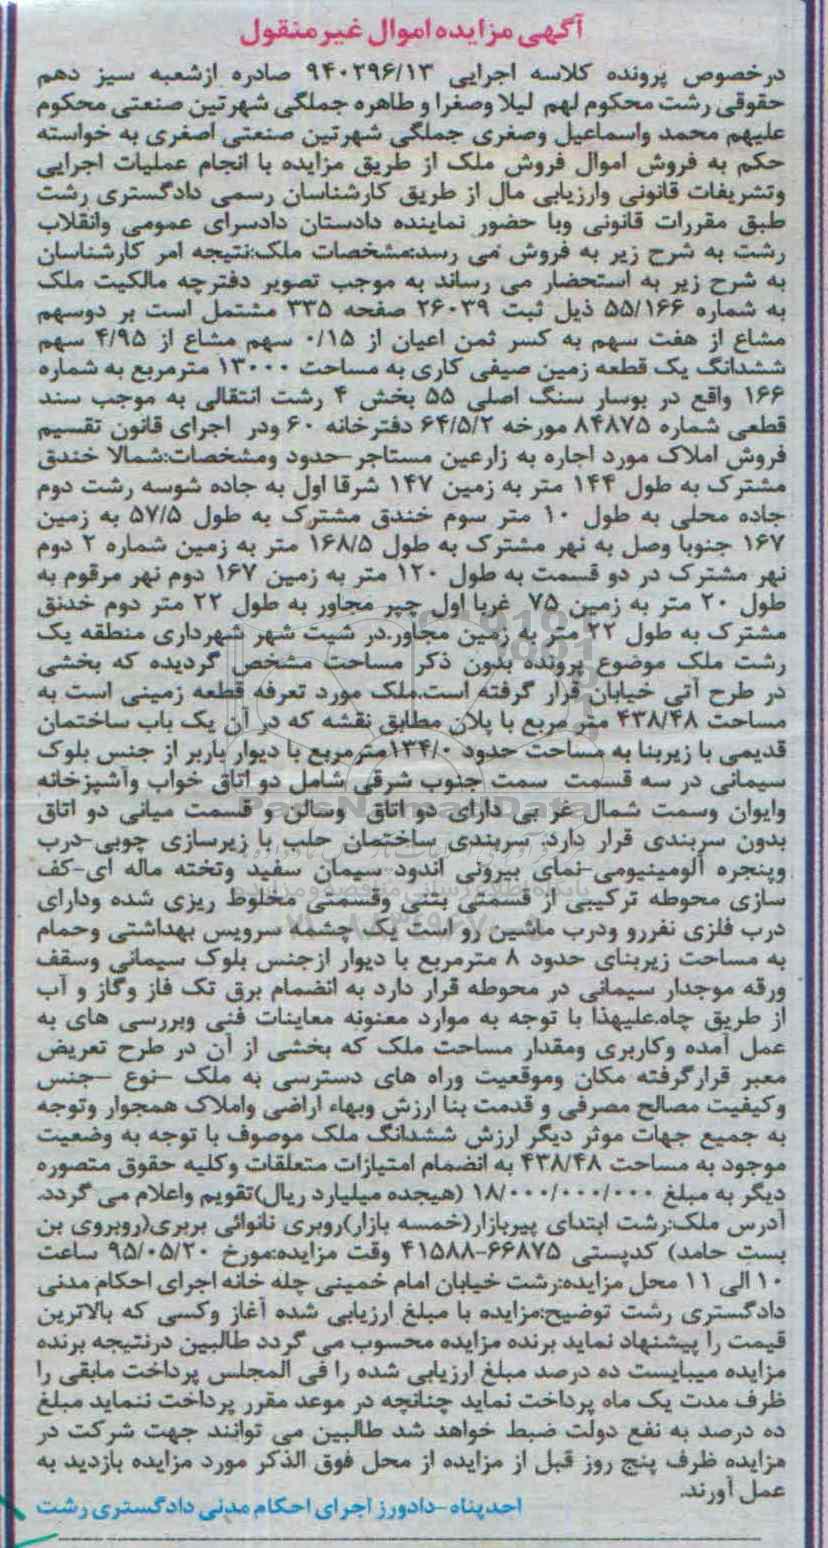 آگهی مزایده اموال غیرمنقول
درخصوص پرونده کلاسه اجرایی ۹۴۰۲۹۶/۱۳ صادره ازشعبه سیز دهم
حقوقی رشت محکوم لهم لیلا وصغرا و طاهره جملگی شهرتین صنعتی محکوم
علیهم محمد واسماعیل وصغری جملگی شهرتین صنعتی اصغری به خواسته
حکم به فروش اموال فروش ملک از طریق مزایده با انجام عملیات اجرایی
وتشریفات قانونی وارزیابی مال از طریق کارشناسان رسمی دادگستری رشت
طبق مقررات قانونی وبا حضور نماینده دادستان دادسرای عمومی وانقلاب
رشت به شرح زیر به فروش می رسد:مشخصات ملک:نتیجه امر کارشناسان
به شرح زیر به استحضار می رساند به موجب تصویر دفترچه مالکیت ملک
به شماره ۵۵/۱۶۶ ذیل ثبت ۲۶۰۳۹ صفحه ۳۳۵ مشتمل است بر دوسهم
مشاع از هفت سهم به کسر ثمن اعیان از ۰/۱۵ سهم مشاع از ۴/۹۵ سهم
ششدانگ یک قطعه زمین صیفی کاری به مساحت ۱۳۰۰۰ مترمربع به شماره
۱۶۶ واقع در بوسار سنگ اصلی ۵۵ بخش ۴ رشت انتقالی به موجب سند
قطعی شماره ۸۴۸۷۵ مورخه ۶۴/۵/۲ دفترخانه ۶۰ ودر اجرای قانون تقسیم
فروش املاک مورد اجاره به زارعین مستاجر-حدود ومشخصات:شمالا خندق
مشترک به طول ۱۴۴ متر به زمین ۱۴۷ شرقا اول به جاده شوسه رشت دوم
جاده محلی به طول ۱۰ متر سوم خندق مشترک به طول ۵۷/۵ به زمین
۱۶۷ جنوبا وصل به نهر مشترک به طول ۱۶۸/۵ متر به زمین شماره ۲ دوم
نهر مشترک در دو قسمت به طول ۱۲۰ متر به زمین ۱۶۷ دوم نهر مرقوم به
طول ۲۰ متر به زمین ۷۵ غربا اول چپر مجاور به طول ۲۲ متر دوم خدنق
مشترک به طول ۲۲ متر به زمین مجاور.در شیت شهر شهرداری منطقه یک
رشت ملک موضوع پرونده بدون ذکر مساحت مشخص گردیده که بخشی
در طرح آتی خیابان قرار گرفته است.ملک مورد تعرفه قطعه زمینی است به
مساحت ۴۳۸/۴۸ متر مربع با پلان مطابق نقشه که در آن یک باب ساختمان
قدیمی با زیربنا به مساحت حدود ۱۳۴/۰مترمربع با دیوار باربر از جنس بلوک
سیمانی در سه قسمت سمت جنوب شرقی شامل دو اتاق خواب وآشپزخانه
وایوان وسمت شمال غر بی دارای دو اتاق وسالن و قسمت میانی دو اتاق
بدون سربندی قرار دارد. سربندی ساختمان حلب با زیرسازی چوبی-درب
وپنجره آلومینیومی-نمای بیرونی اندود سیمان سفید وتخته ماله ای-کف
سازی محوطه ترکیبی از قسمتی بتنی وقسمتی مخلوط ریزی شده ودارای
درب فلزی نفررو ودرب ماشین رو است یک چشمه سرویس بهداشتی وحمام
به مساحت زیربنای حدود ۸ مترمربع با دیوار ازجنس بلوک سیمانی وسقف
ورقه موجدار سیمانی در محوطه قرار دارد به انضمام برق تک فاز وگاز و آب
از طریق چاه.علیهذا با توجه به موارد معنونه معاینات فنی وبررسی های به
عمل آمده وکاربری ومقدار مساحت ملک که بخشی از آن در طرح تعریض
معبر قرارگرفته مکان وموقعیت وراه های دسترسی به ملک -نوع -جنس
وکیفیت مصالح مصرفی و قدمت بنا ارزش وبهاء اراضی واملاک همجوار وتوجه
به جمیع جهات موثر دیگر ارزش ششدانگ ملک موصوف با توجه به وضعیت
موجود به مساحت ۴۳۸/۴۸ به انضمام امتیازات متعلقات وکلیه حقوق متصوره
دیگر به مبلغ ۱۸/۰۰۰/۰۰۰/۰۰۰ (هیجده میلیارد ریال)تقویم واعلام می گردد.
آدرس ملک:رشت ابتدای پیربازار(خمسه بازار)روبری نانوائی بربری(روبروی بن
بست حامد) کدپستی ۶۶۸۷۵-۴۱۵۸۸ وقت مزایده:مورخ ۹۵/۰۵/۲۰ ساعت
۱۰ الی ۱۱ محل مزایده:رشت خیابان امام خمینی چله خانه اجرای احکام مدنی
دادگستری رشت توضیح:مزایده با مبلغ ارزیابی شده آغاز وکسی که بالاترین
قیمت را پیشنهاد نماید برنده مزایده محسوب می گردد طالبین درنتیجه برنده
مزایده میبایست ده درصد مبلغ ارزیابی شده را فی المجلس پرداخت مابقی را
ظرف مدت یک ماه پرداخت نماید چنانچه در موعد مقرر پرداخت ننماید مبلغ
ده درصد به نفع دولت ضبط خواهد شد طالبین می توانند جهت شرکت در
مزایده ظرف پنج روز قبل از مزایده از محل فوق الذکر مورد مزایده بازدید به
عمل آورند.
احدپناه -دادورز اجرای احکام مدنی دادگستری رشت
ParsNamadData